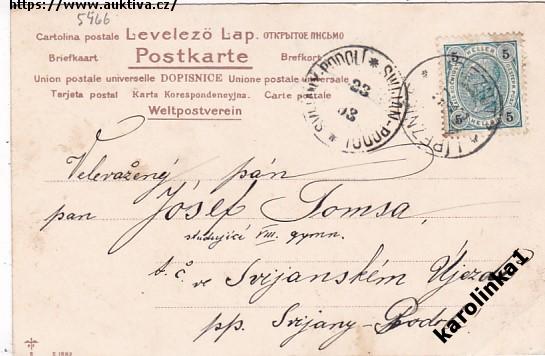 https://www.auktiva.cz/
5466
Cartolina postale Levelező Lap. ОТКРЫТОЕ ПИСЬМО
Briefkaart Postkarte Brefkort
Union postale universelle DOPISNICE Unione postale universale
Terjeta postal Karta Korespondencyjna. Carte postale
Weltpostverein
SVIJANY-PODOLÍ * SWIJAN-PODOL *
23
03
5 HELLER 5
5 5
Velevážený pán
pan Josef Tomsa,
studující VIII. gymn.
t. č. ve Svijanském Újezdě
pp. Svijany-Podolí
karolinka1